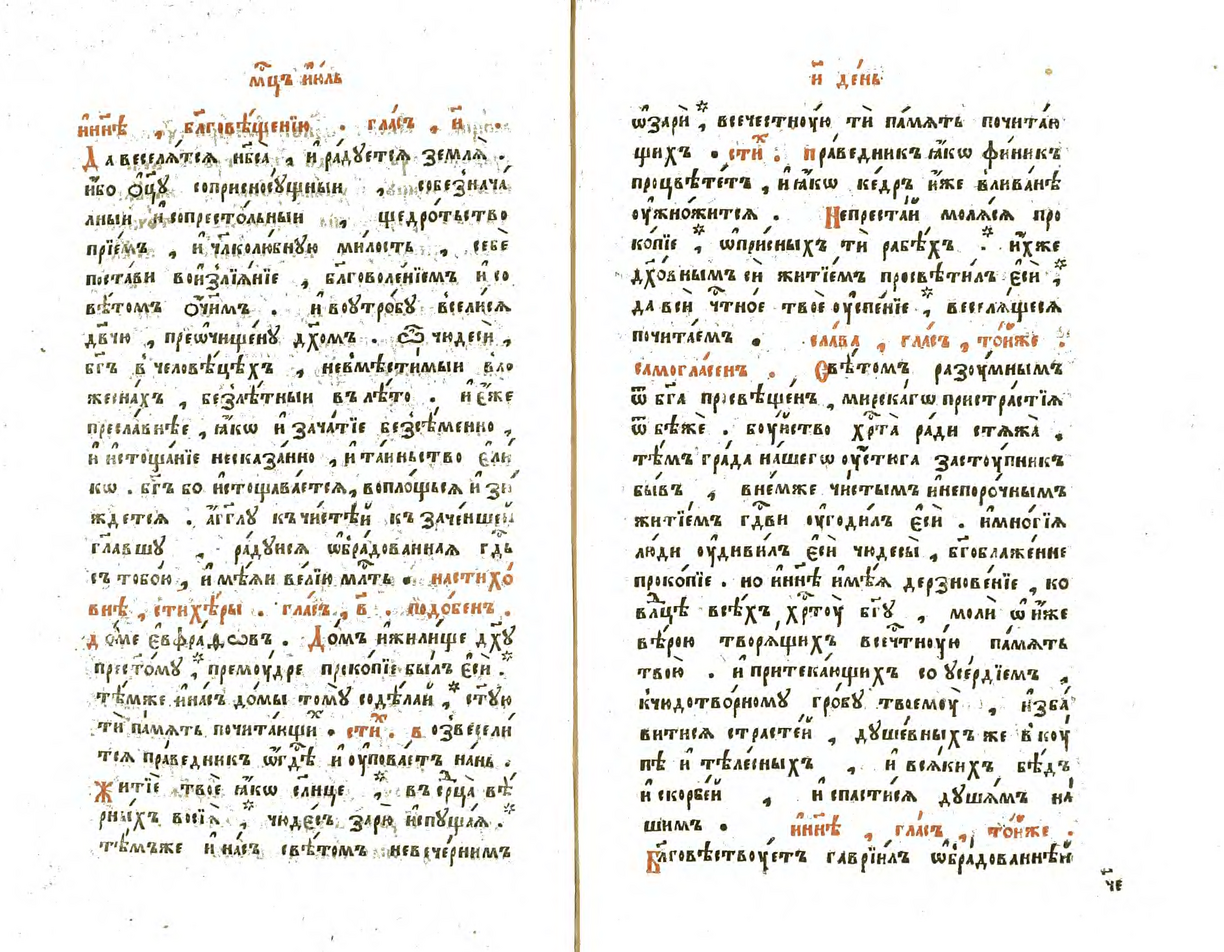 мⷭ҇цъ і҆ю́ль
нн҃ѣ , бл҃говѣ́щенїю . гла́съ , и҃ .
Да веселѧ́тсѧ нб҃са̀ , и҆ ра́дуетсѧ землѧ̀ .
и҆́бо ѻ҆ц҃у̀ соприсносу́щныи , собезнача́
лныи и҆ сопресто́льныи , щедро́тьство
прїе́мъ , и҆ чл҃колю́бную ми́лость , себѐ
поста́ви во и҆злїѧ́нїе , бл҃говоле́нїемъ и҆ со
вѣ́томъ ѻ҆́ч҃имъ . и҆ во утро́бу всели́сѧ
дв҃чю , преѡчище́ну дх҃омъ . Ѽ чюдесѝ ,
бг҃ъ в человѣ́цѣхъ , невмѣсти́мыи вло
жесна́хъ , безлѣ́тныи въ лѣ́то . и҆ є҆́же
пресла́внѣе , ꙗ҆́кѡ и҆ зача́тїе безсѣ́менно ,
и҆ и҆стоща́нїе несказа́нно , и҆ та́иньство є҆ли́
кѡ . бг҃ъ бо и҆стощава́етсѧ , воплоща́ьсѧ и҆ зи́
ждетсѧ . а҆́гг҃лу къ чи́стѣй къ заче́ншей
гл҃авшу , ра́дуисѧ ѡ҆бра́дованнаѧ гд҃ь
съ тобо́ю , и҆мѣ́ѧи ве́лїю мл҃ть . на стихо́
внѣ , стихѣ́ры . гла́съ , в҃ . подо́бенъ .
до́ме є҆вфра́ѳовъ . До́мъ и҆ жили́ще дх҃у
прест҃о́му , * премоу́дре проко́пїе бы́лъ є҆сѝ . *
тѣ́мже и҆ на́съ до́мы тому̀ содѣ́лай , * ст҃у́ю
тѝ па́мѧть почита́ющи . сти́х . возвесели́
тсѧ пра́ведникъ ѡ҆ гдⷭ҇ѣ и҆ оу҆пова́етъ на́нь .
Житїѐ твоѐ ꙗ҆́кѡ сл҃нце , * въ срⷣца вѣ́
рныхъ возсїѧ̀ , * чюде́съ зарю̀ и҆спуща́ѧ . *
тѣ́мъже и҆ на́съ свѣ́томъ невече́рнимъ
и҃ де́нь
ѡ҆зарѝ , * всече́стноую тѝ па́мѧть почита́ю
щихъ . сти́х : пра́ведникъ ꙗ҆́кѡ фи́никъ
процвѣте́тъ , и҆ ꙗ҆́кѡ ке́дръ и҆́же в лива́нѣ
оу҆мно́житсѧ . Непреста́й молѧ́сѧ про
ко́пїе , * ѡ҆ при́сныхъ тѝ рабѣ́хъ . * и҆́хже
дх҃о́внымъ сѝ житїе́мъ просвѣти́лъ є҆сѝ , *
да всѝ чⷭ҇тно́е твоѐ оу҆спе́нїе , * веселѧ́щесѧ
почита́емъ . сла́ва , гла́съ , то́йже :
самогла́сенъ . Свѣ́томъ разоу́мнымъ
ѿ бг҃а просвѣще́нъ , мирска́гѡ пристра́стїѧ
ѿбѣ́же . боу́йство хрⷭ҇та̀ ра́ди стѧжа̀ ,
тѣ́мъ гра́да на́шегѡ оу҆́стюга засто́упникъ
бы́въ , в не́мже чи́стымъ и҆ непоро́чнымъ
житїе́мъ гдⷭ҇ви оу҆годи́лъ є҆сѝ . и҆ мно́гїѧ
лю́ди оу҆диви́лъ є҆сѝ чюдесы̀ , бг҃облаже́нне
проко́пїе . но нн҃ѣ и҆мѣ́ѧ дерзнове́нїе , ко
влⷣцѣ всѣ́хъ , хрⷭ҇тоу̀ бг҃у , молѝ ѡ҆ и҆́же
вѣ́рою творѧ́щихъ всечⷭ҇тноую па́мѧть
твою̀ . и҆ притека́ющихъ со усе́рдїемъ ,
к чюдотво́рному гро́бу твоемоу̀ , и҆зба́
витисѧ страсте́й , душе́вныхъ же в коу́
пѣ и҆ тѣле́сныхъ , и҆ всѧ́кихъ бѣ́дъ
и҆ скорбе́й , и҆ спасти́сѧ душа́мъ на́
шимъ . нн҃ѣ , гла́съ , то́йже .
Бл҃говѣ́ствоуетъ гаврїи́лъ ѡ҆бра́дованнѣй
че